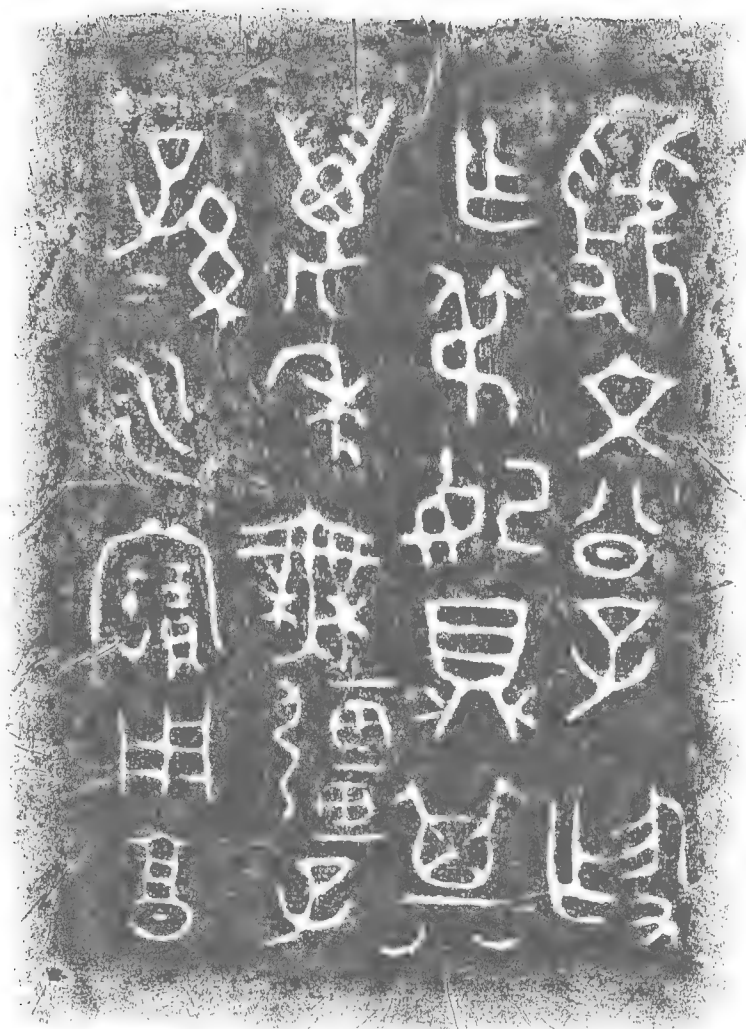 虢文公子
乍叔妃鼎其
萬年無疆子
孫永寶用享